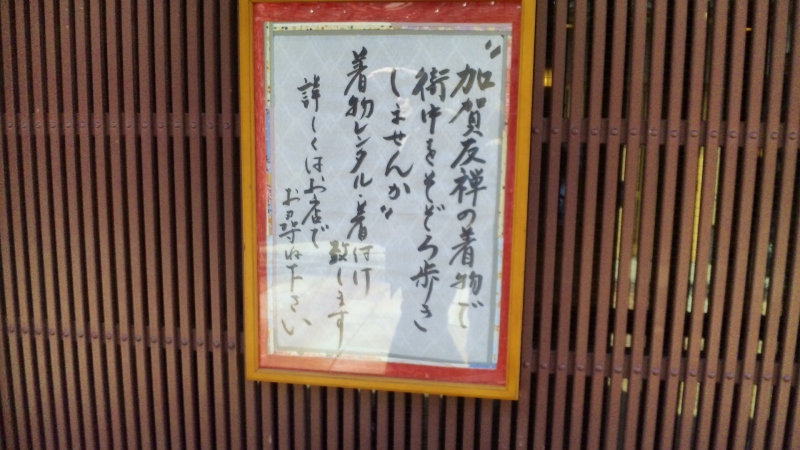 "加賀友禅の着物で
街中をそぞろ歩き
しませんか"
着物レンタル・着付け
致します
詳しくはお店で
お尋ね下さい